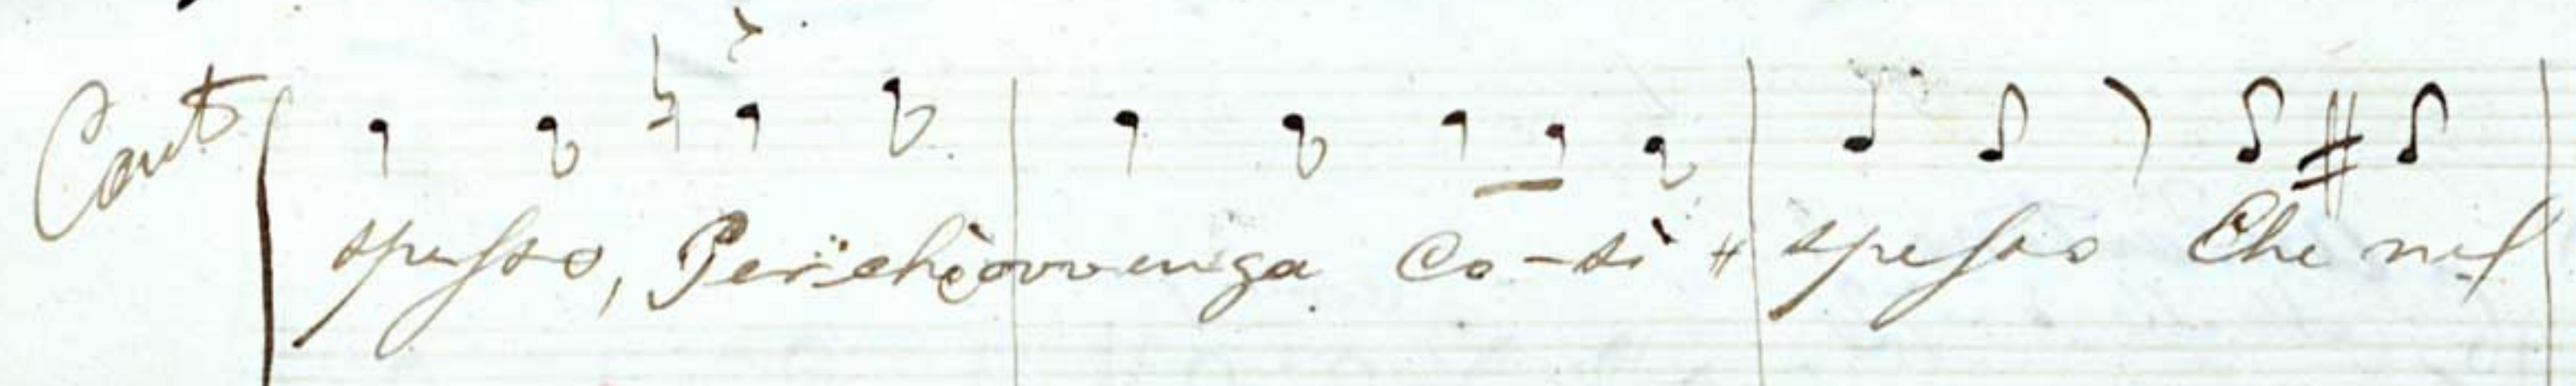 Cant
spesso, Perchè avvenga Co-sì spesso Che nel